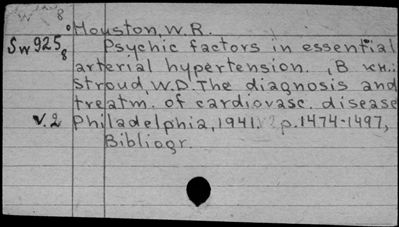 Houston, W.R.
Sw 925 8 Psychic factors in essential
arterial hypertension. , В кн.:
Stroud, W.D. The diagnosis and
treatm. of cardiovasc. disease
v. 2 Philadelphia, 1941. p. 1474-1497,
Bibliogr.